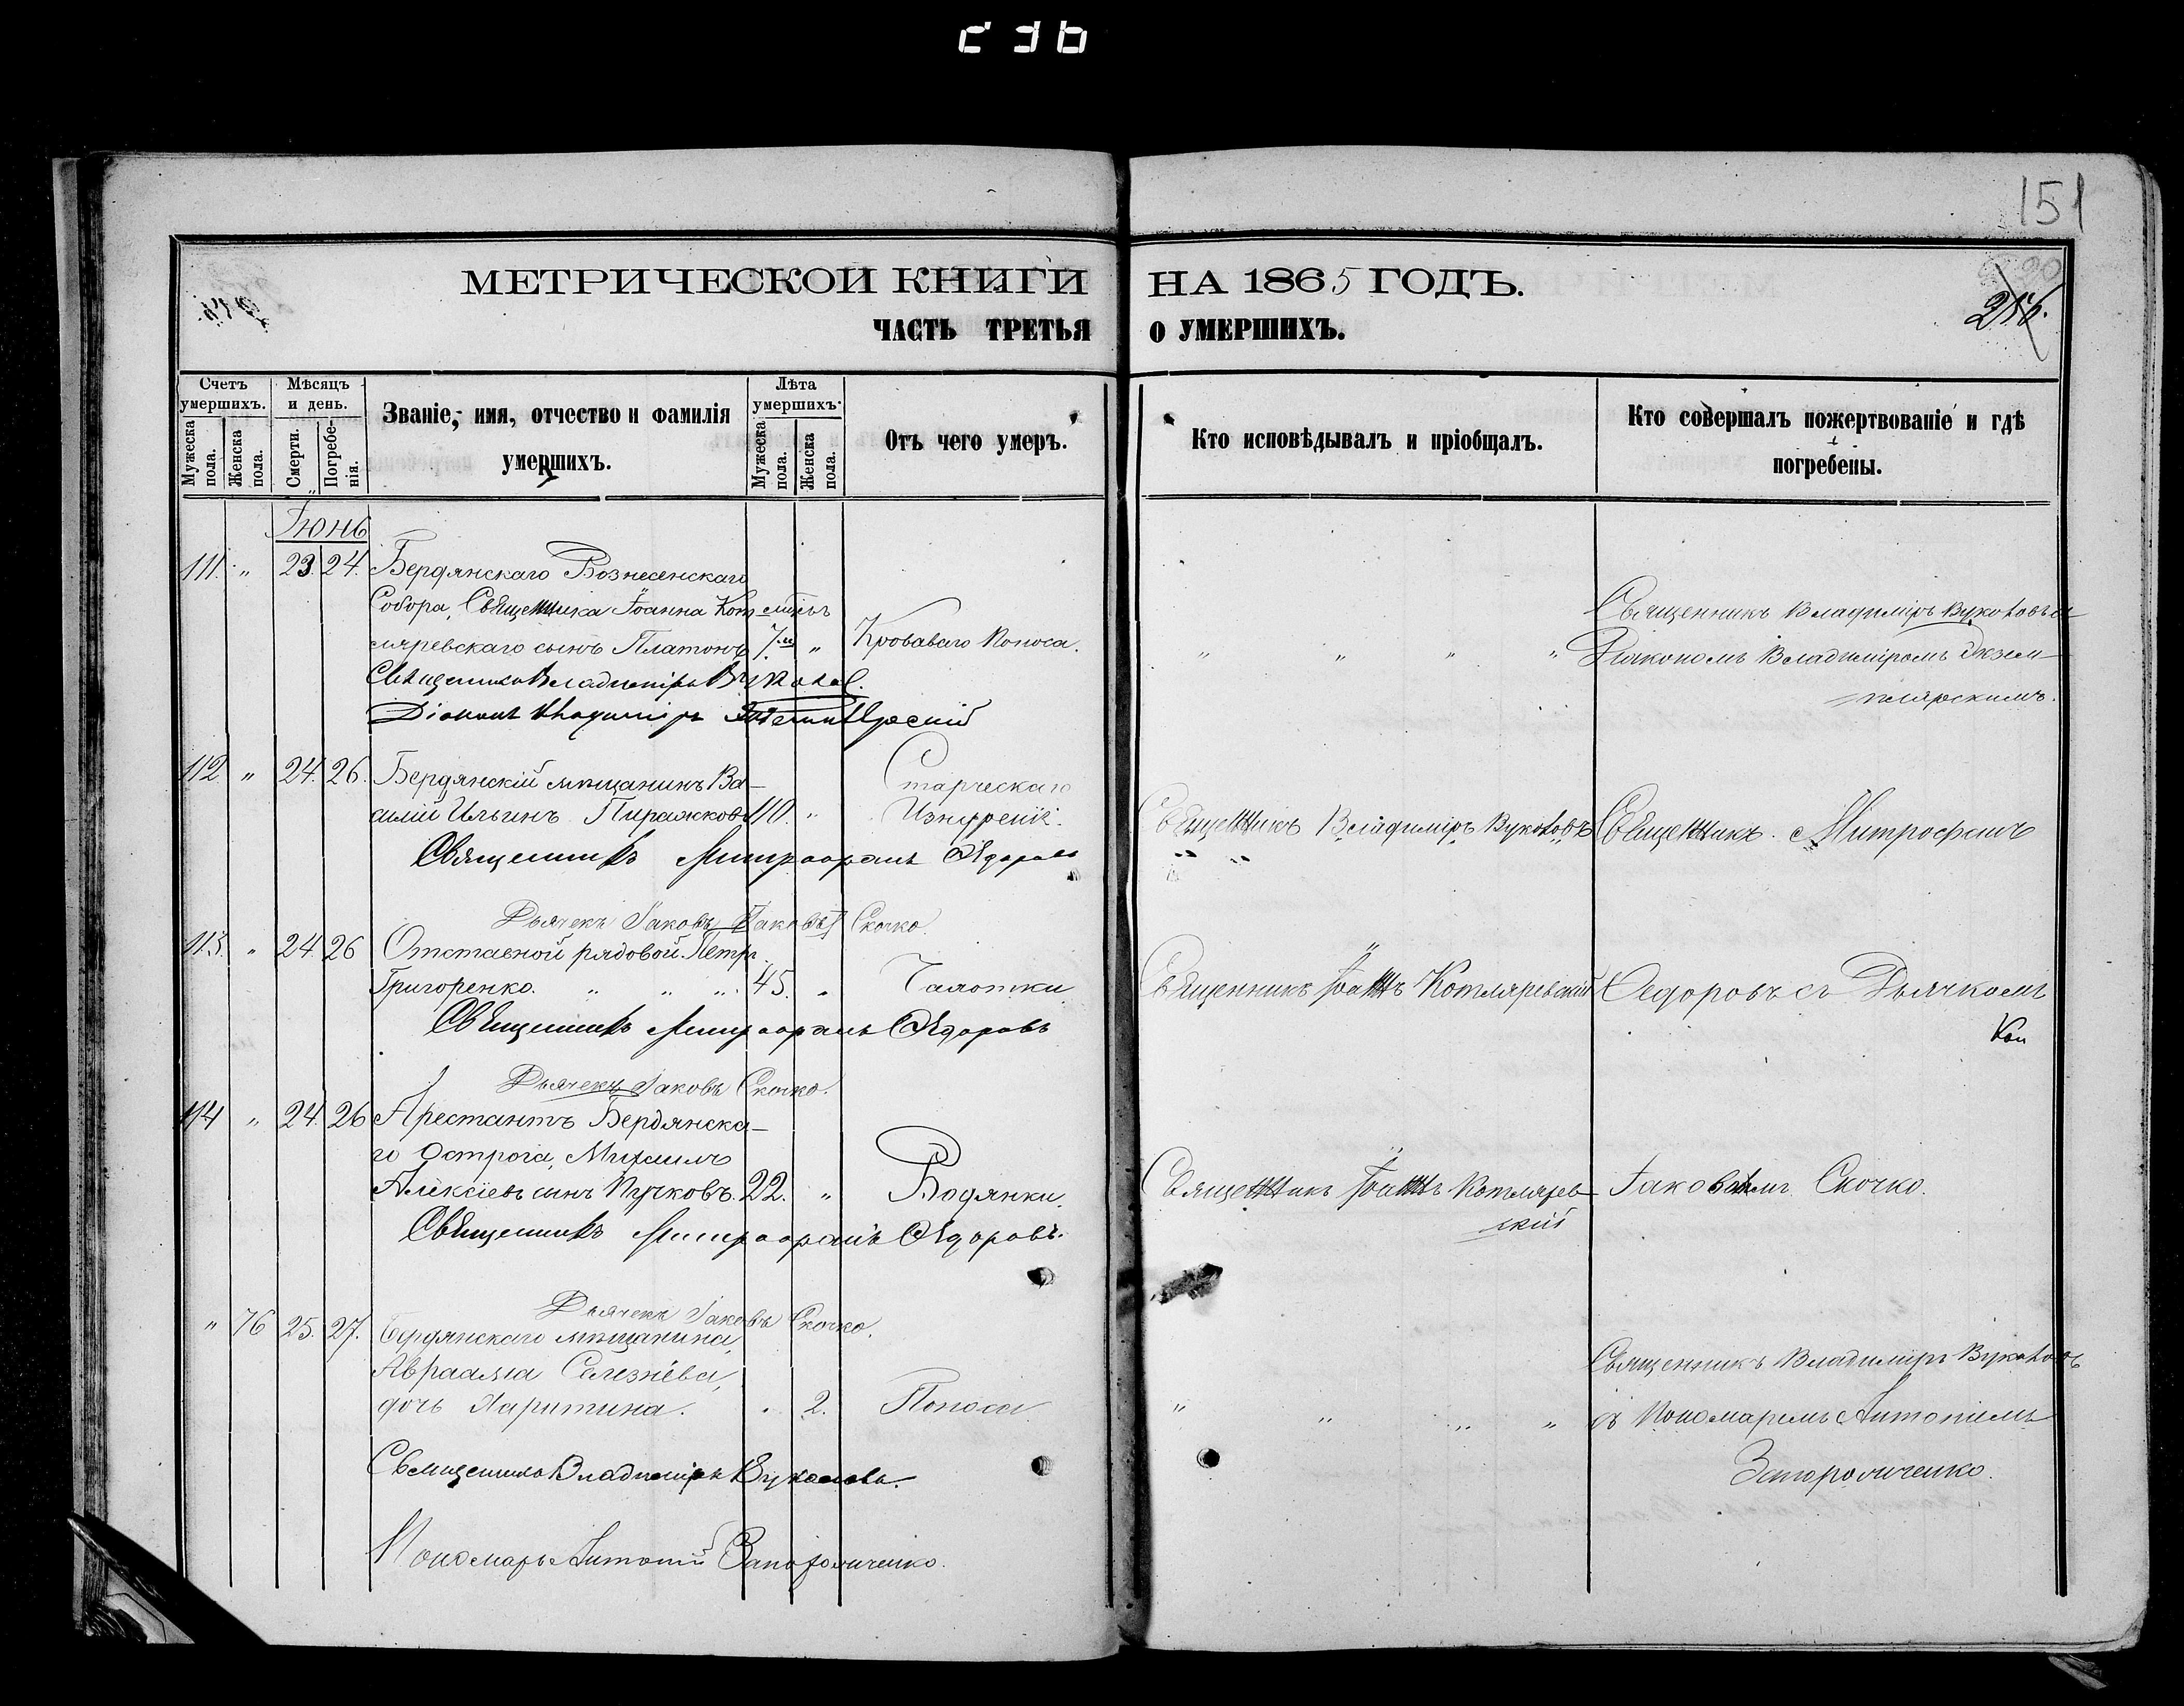 151
МЕТРИЧЕСКОЙ КНИГИ НА 1865 ГОДЪ.
ЧАСТЬ ТРЕТЬЯ О УМЕРШИХЪ.
Счетъ умершихъ.
Мужеска пола.
Женска пола.
Мѣсяцъ и день.
Смерти.
Погребенія.
Званіе, имя, отчество и фамилія
умершихъ.
Лѣта умершихъ.
Мужеска пола.
Женска пола.
Отъ чего умеръ.
Кто исповѣдывалъ и пріобщалъ.
Кто совершалъ пожертвованіе и гдѣ
погребены.
Іюнь
111. " 23. 24. Бердянскаго Вознесенскаго
Собора, Священника Іоанна Кот
ляревскаго сынъ Платонъ 7. " Кроваваго поноса.
Священникъ Владиміръ Вуколов
Діаконъ Владиміръ
Священникъ Владиміръ Вуколовъ съ
Діакономъ Владиміромъ Экзем-
плярскимъ.
112 " 24. 26. Бердянскій мѣщанинъ Ва-
силій Ильинъ Пиражковъ 110. " Старческаго
Изнуренія.
Священникъ Митрофанъ Ѳедоровъ
Дьячекъ Іаковъ Скочко.
Священникъ Владиміръ Вуколовъ
Священникъ Митрофанъ
113. " 24. 26 Отставной рядовой Петръ
Григоренко. " " " 45. " Чахотки
Священникъ Митрофанъ Ѳедоровъ
Дьячекъ Іаковъ Скочко.
Священникъ Іоаннъ Котляревскій
Ѳедоровъ съ Дьячкомъ
114 " 24. 26 Арестантъ Бердянска-
го Острога, Михаилъ
Алексіевъ сынъ Пучковъ. 22. " Водянки.
Священникъ Митрофанъ Ѳедоровъ.
Дьячекъ Іаковъ Скочко.
Священникъ Іоаннъ Котлярев-
скій
Іаковомъ Скочко.
" 76 25. 27. Бердянскаго мѣщанина,
Авраама Селезнёва,
дочь Харитина. " 2. Поноса
Священникъ Владиміръ Вуколовъ.
Пономарь Антоній Запорожченко.
" " " "
Священникъ Владиміръ Вуколовъ
съ Пономаремъ Антоніемъ
Запорожченко.